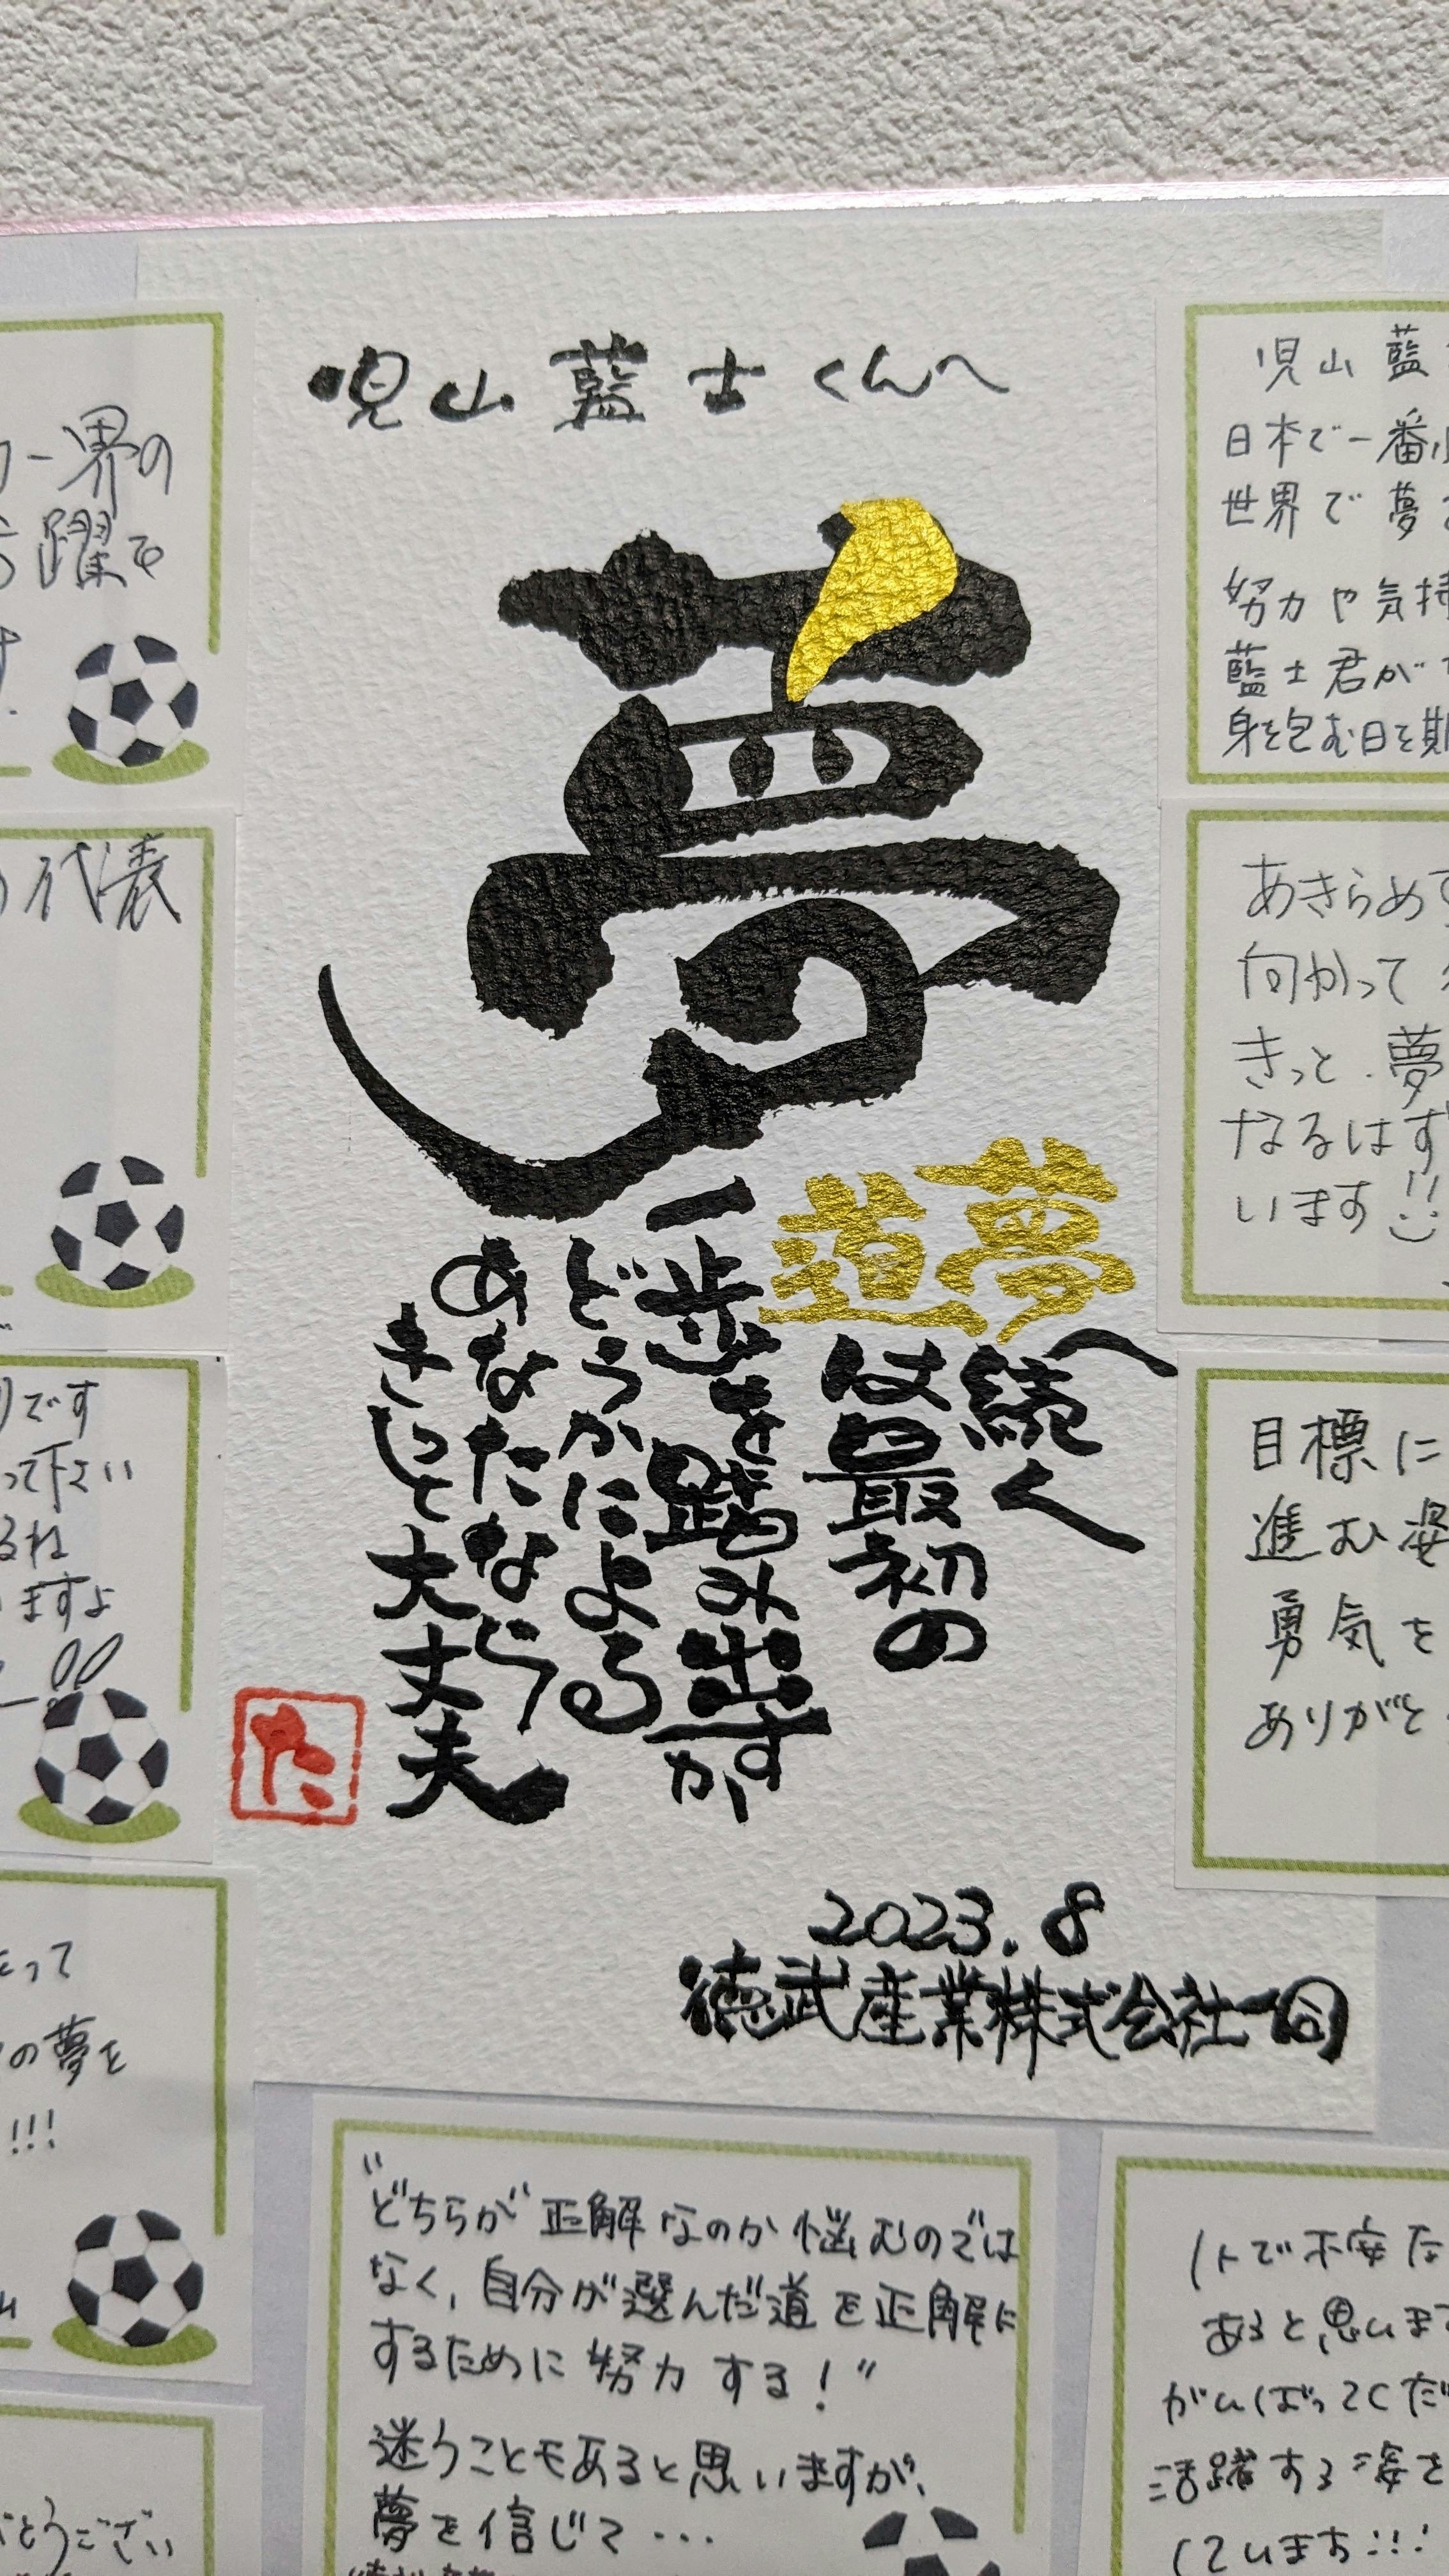 児山藍士くんへ
夢
夢へ続く
道は最初の
一歩を踏み出すか
どうかによる
あなたなら
きっと大丈夫
た
2023.8
徳武産業株式会社一同
界の
躍を
代表
です
って下さい
るね
ますよ
って
の夢を
!!!
とうござい
児山藍
日本で一番
世界で夢
努力や気持
藍士君が
身を包む日を期
あきらめず
向かって
きっと.夢
なるはず
います!!
目標に
進む姿
勇気を
ありがと
"どちらが正解なのか悩むのでは
なく、自分が選んだ道を正解に
するために努力する!"
迷うこともあると思いますが、
夢を信じて...
1人で不安な
あると思いま
がんばってくだ
活躍する姿を
しています!!!